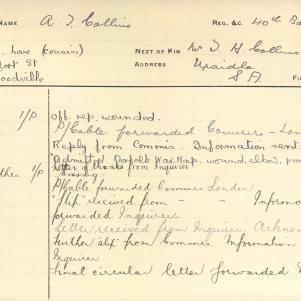 NAME A. T. Collins REG. &C. 40th Ba
Love (cousin) NEXT OF KIN Mr T. H. Collins
Port St ADDRESS Uraidla
Woodville S A. FI
1/P Off. rep. wounded.
P/Cable forwarded Commrs - Lon
Reply from Commis. Information sent
Admitted Norfolk War Hosp. wound, elbow,
ther 1/P Letter of thanks from Inquirer
Missing
P/Cable forwarded Commrs London
"Slip" received from " Informa
forwarded Inquirers.
Letter received from Inquirer. Acknow
Further slip from Commrs. Information
Inquirer
Final circular letter forwarded